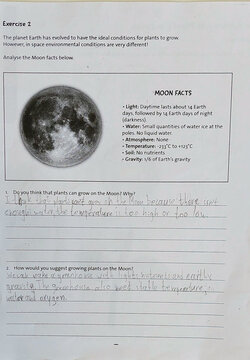 Exercise 2
The planet Earth has evolved to have the ideal conditions for plants to grow.
However, in space environmental conditions are very different!
Analyse the Moon facts below.
MOON FACTS
• Light: Daytime lasts about 14 Earth
days, followed by 14 Earth days of night
(darkness).
• Water: Small quantities of water ice at the
poles. No liquid water.
• Atmosphere: None
• Temperature: -233°C to +123°C
• Soil: No nutrients
• Gravity: 1/6 of Earth's gravity
1. Do you think that plants can grow on the Moon? Why?
I think that plants can't grow on the Moon because there isn't
enough water, the temperature is too high or too low.
2. How would you suggest growing plants on the Moon?
We can make a greenhouse with lights, nutrients and earthly
gravity. The greenhouse also need stable temperature,
water and oxygen.